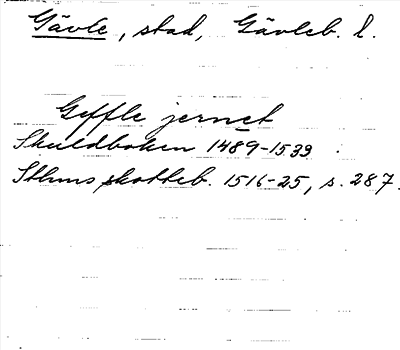 Gävle, stad, Gävleb. l.
Geffle jernet
Skuldboken 1489-1539.
Sthms skotteb. 1516-25, s. 287.